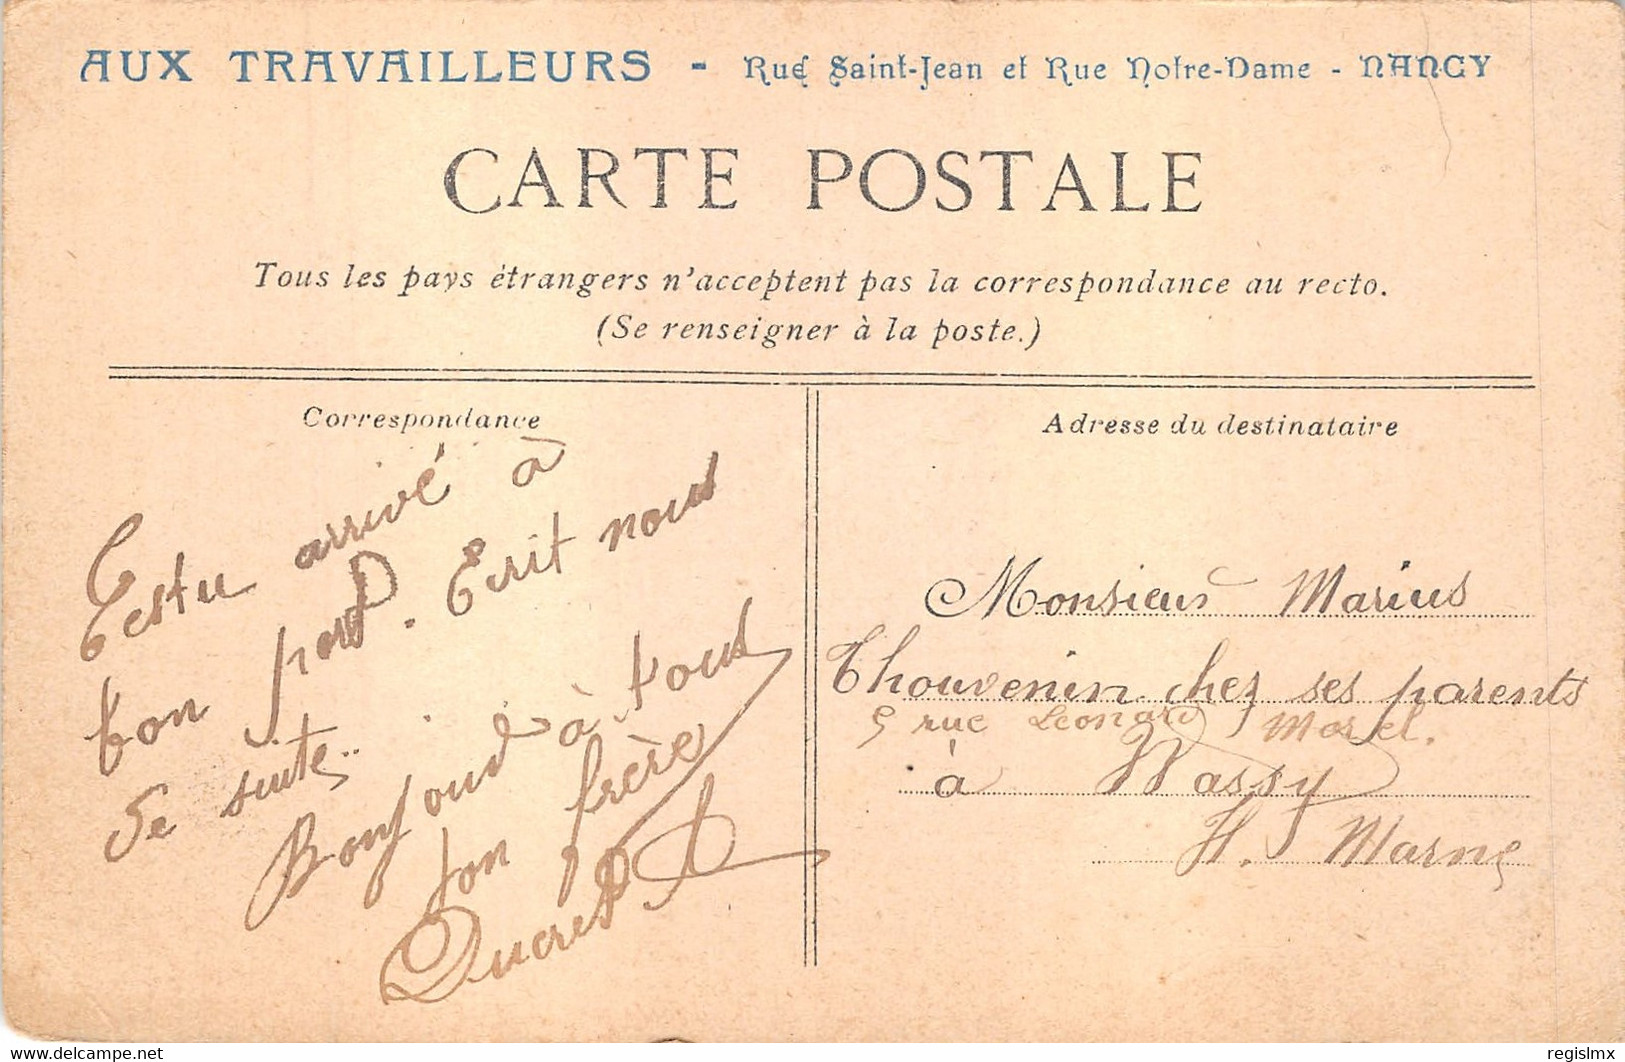 AUX TRAVAILLEURS - Rue Saint-Jean et Rue Notre-Dame - NANCY
CARTE POSTALE
Tous les pays étrangers n'acceptent pas la correspondance au recto.
(Se renseigner à la poste.)
Correspondance
Testu arrivé à
bon port. Ecrit nous
de suite..
Bonjour à tous
ton frère
Ducret
Adresse du destinataire
Monsieur Marius
Thouvenin chez ses parents
5 rue Leonard Morel.
à Wassy
H. Marne
www.delcampe.net
regislmx